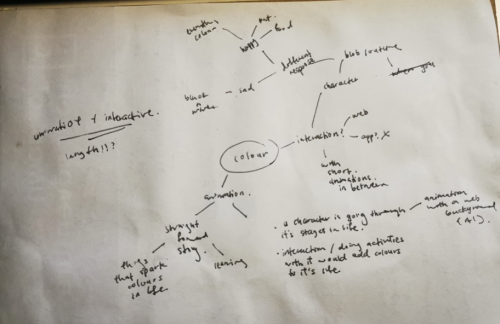 everything
colour
eat
food
happy
different
response
blob creature
when you
black
n
white
sad
character
animation & interactive.
length!??
colour
interaction?
web
apps X
with
short
animations
in between
animation
straight
forward
story.
things
that spark
colours
in life
learning
• a character is going through
it's stages in life.
animation
with a web
background
(AI).
• interaction / doing activities
with it would add colours
to it's life